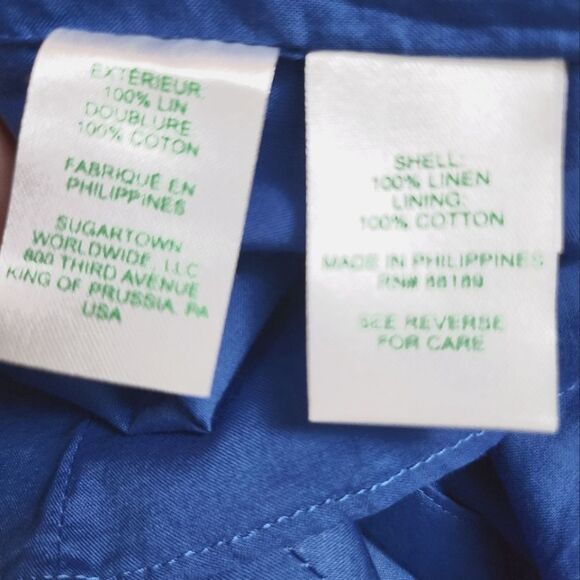 EXTÉRIEUR:
100% LIN
DOUBLURE:
100% COTON
FABRIQUÉ EN
PHILIPPINES
SUGARTOWN
WORLDWIDE, LLC
800 THIRD AVENUE
KING OF PRUSSIA, PA
USA
SHELL:
100% LINEN
LINING:
100% COTTON
MADE IN PHILIPPINES
RN# 88189
SEE REVERSE
FOR CARE